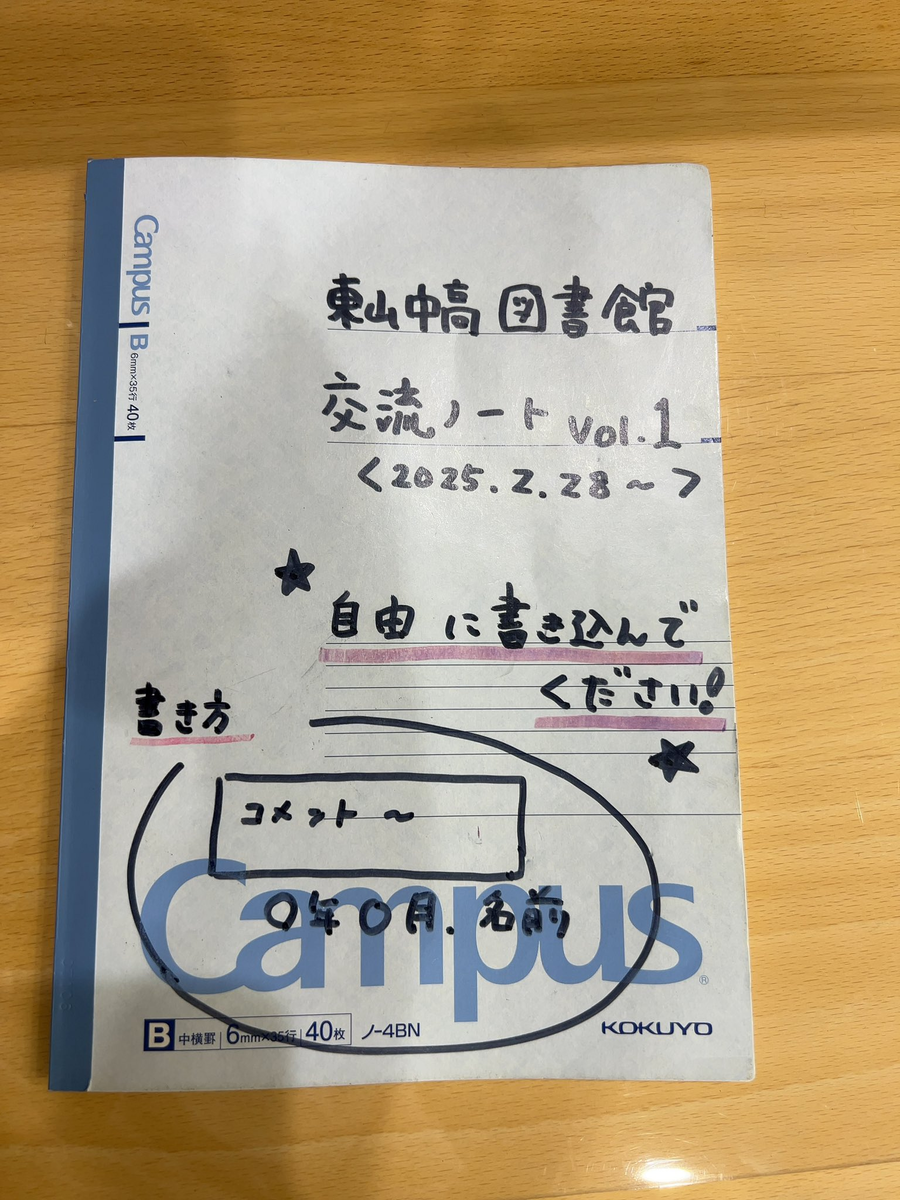 東山中高 図書館
交流ノート vol.1
<2025.2.28~>
★
自由 に書き込んで
ください!
★
書き方
コメント ~
〇年〇月. 名前
Campus
B 中横罫 6mm×35行 40枚 ノ-4BN
KOKUYO
Campus B 6mm×35行 40枚